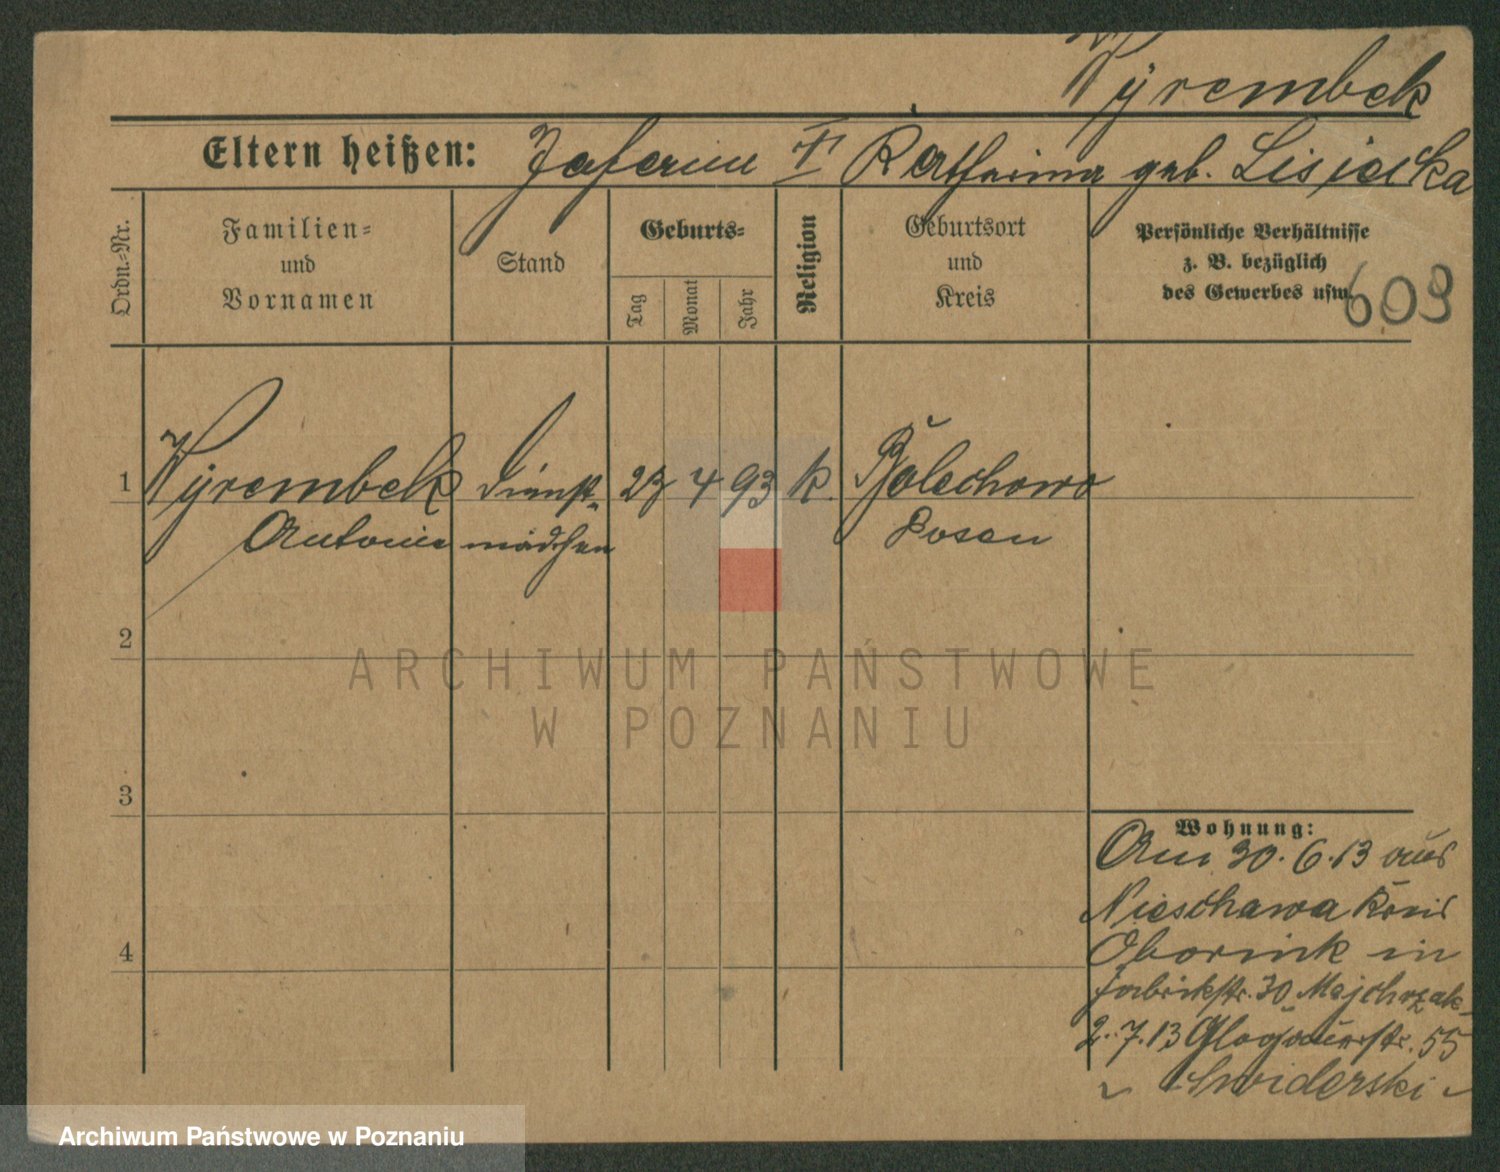 Wyrembek
Eltern heißen: † Katharina geb. Lisiecka
Ordn.-Nr.
Familien-
und
Vornamen
Stand
Geburts-
Tag
Monat
Jahr
Religion
Geburtsort
und
Kreis
Persönliche Verhältnisse
z. B. bezüglich
des Gewerbes usw.
609
1 Wyrembek Dienst- 23 4 93 k. Bolechowo
Antonie mädchen Posen
2
3
4
Wohnung:
Am 30. 6. 13 aus
Nieschawa Kreis
Obornik in
Fabrikstr. 30 Majchrzak
2. 7. 13 Glogauerstr. 55
Swiderski
ARCHIWUM PAŃSTWOWE
W POZNANIU
Archiwum Państwowe w Poznaniu